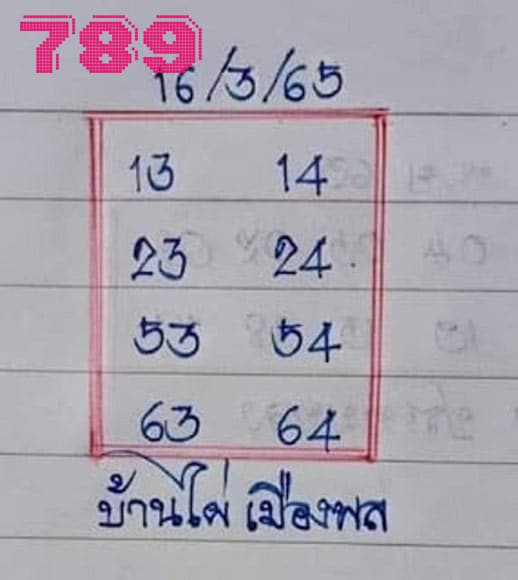 789
16/3/65
13 14
23 24
53 54
63 64
บ้านไผ่ เมืองพล